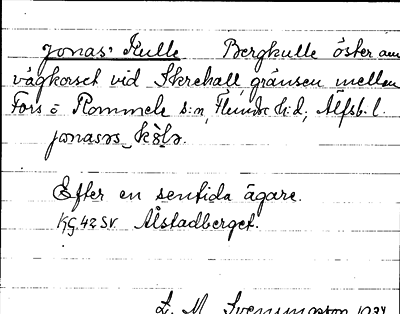 Jonas' Kulle Bergkulle öster om
vägkorset vid Skrehall, gränsen mellan
Fors o Rommele s:n, Flundre h:d, Älfsb. l.
jonasəs kələ.
Efter en sentida ägare.
KG. 42 SV Ålstadberget.
L. M. Svenungsson 1934